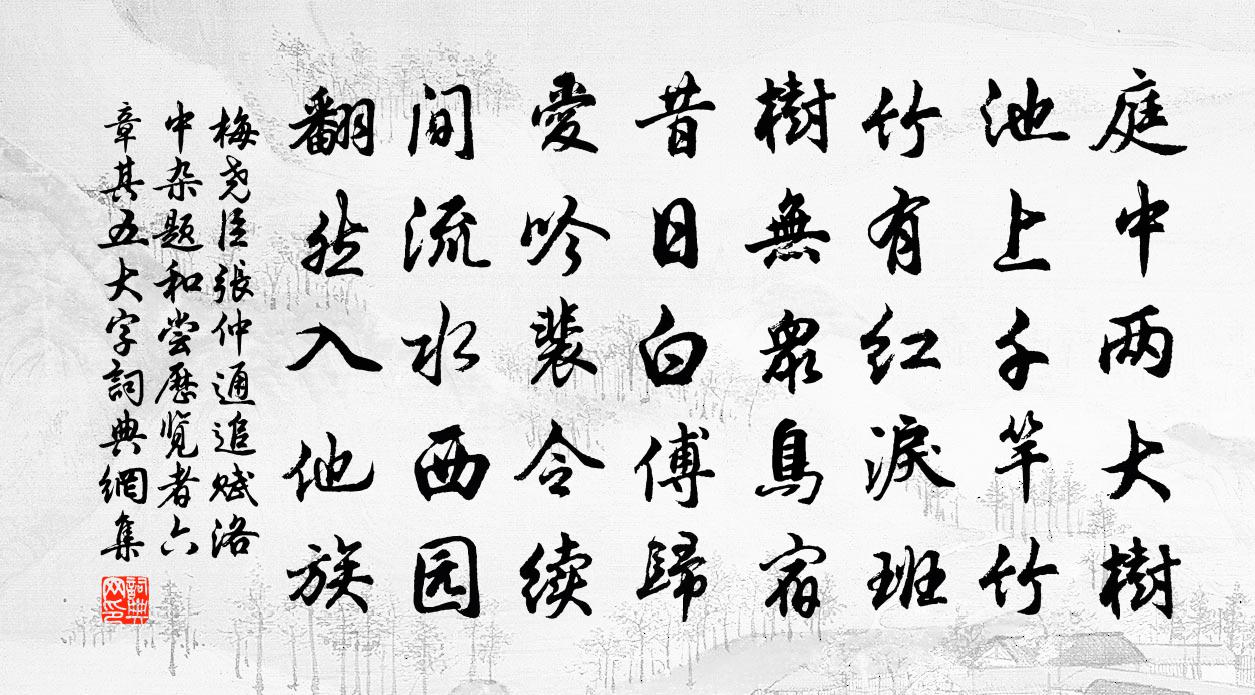 庭中两大樹
池上千竿竹
竹有红淚班
樹無眾鳥宿
昔日白傅歸
愛吟裴令续
间流水西园
翻然入他族
梅尧臣張仲通追赋洛
中杂题和尝歷览者六
章其五大字詞典網集
詞典网印